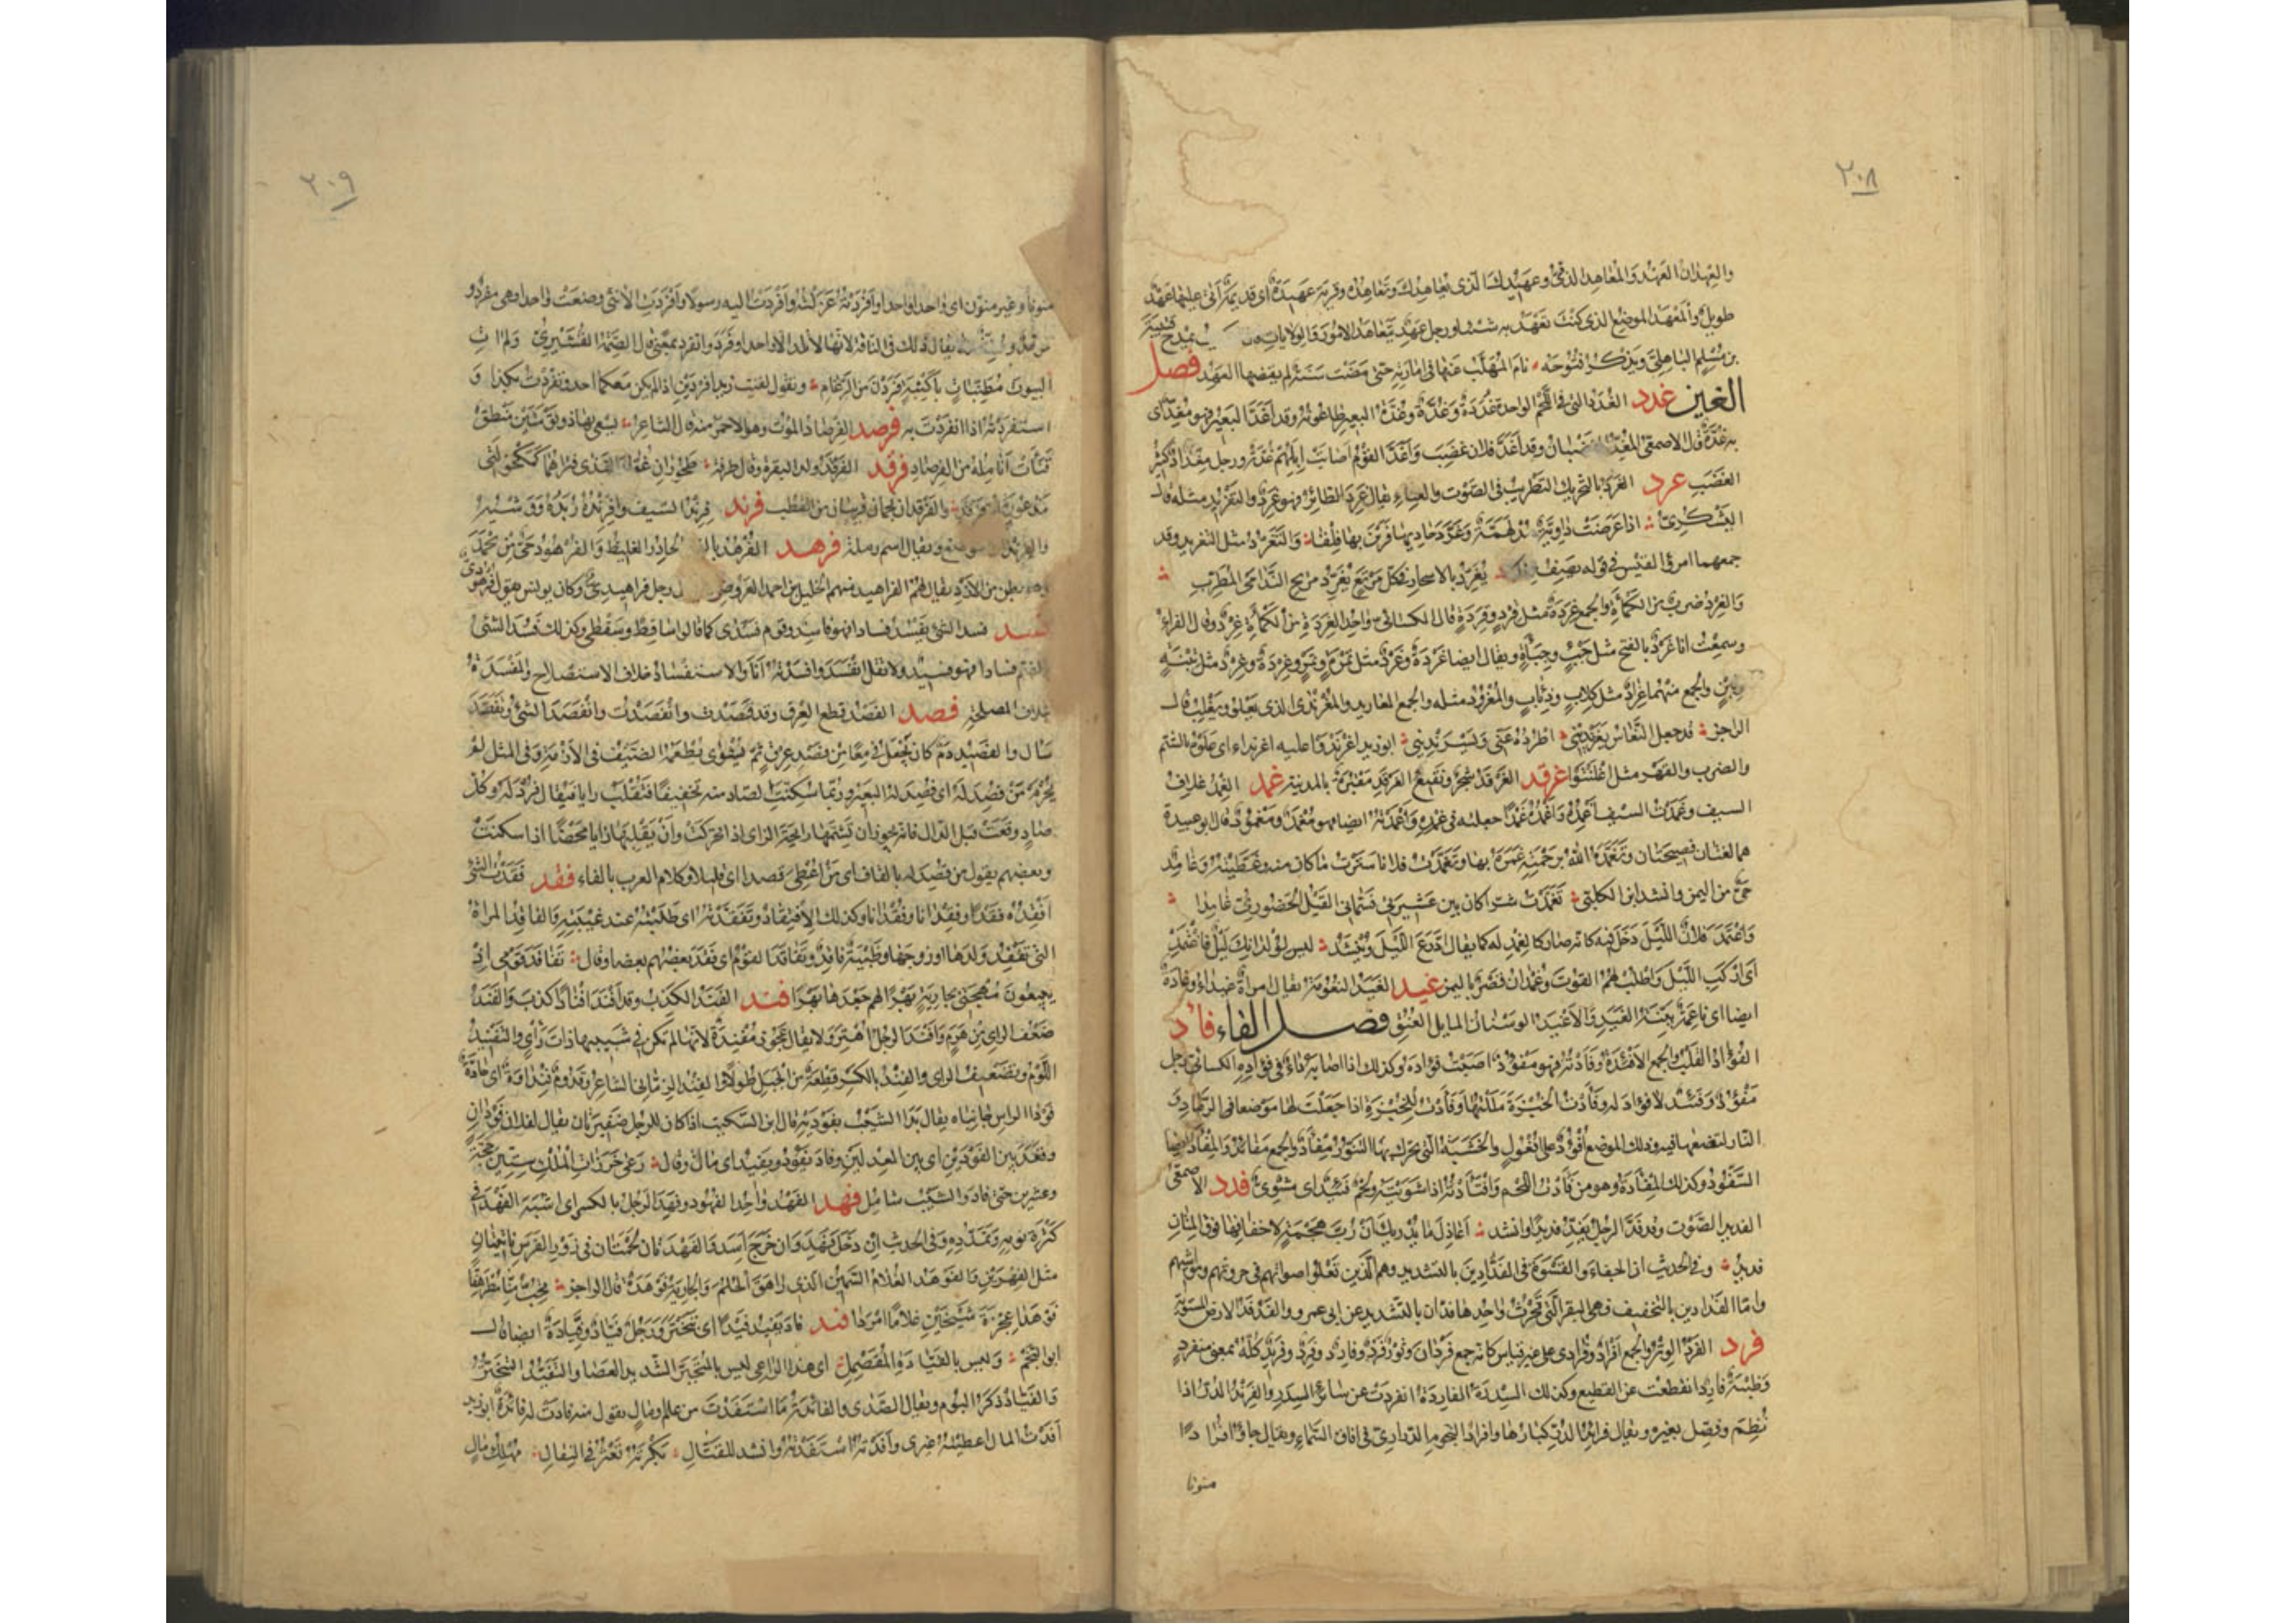 ٢٠٨
والعهدان العهد والمعاهد الذمي وعهيدك الذي يعاهدك وتعاهده وقرية عهيدة اي قديمة اتى عليها عهد
طويل والمعهد الموضع الذي كنت تعهد به شيئا ورجل عهد يتعاهد الامور والولايات يمدح قتيبة
بن مسلم الباهلي ويذكر فتوحه نام المهلب عنها في امارته حتى مضت سنة لم يقضها العهد فصل
الغين غدد الغدد التي في اللحم الواحدة غددة وغدة وغدة البعير طاعونه وقد اغد البعير فهو مغد اي
به غدة قال الاصمعي المغد الغضبان وقد اغد فلان غضب واغد القوم اصابت ابلهم غدة ورجل مغداد كثير
الغضب غرد الغرد بالتحريك التطريب في الصوت والغناء يقال غرد الطائر فهو غرد والتغريد مثله قال
اليشكري اذا عرضت داوية مدلهمة وغرد حاديها فرين بها فلقا والتغرد مثل التغريد وقد
جمعهما امرؤ القيس في قوله يصف يغرد بالاسحار في كل مرتع تغرد مريح الندامى المطرب
والغرد ضرب من الكمأة والجمع غردة مثل قرد وقردة قال الكسائي واحد الغردة من الكمأة غرد وقال الفراء
وسمعت انا غرد بالفتح مثل جبء وجبأة ويقال ايضا غردة وغرد مثل تمرة وتمر وغردة وغرد مثل تبنة
وتبن والجمع منهما غراد مثل كلاب وذئاب والمغرود مثله والجمع المغاريد والمغرندي الذي يعلو ويغلب قال
الراجز قد جعل النعاس يغرنديني اطرده عني ويسرنديني ابو زيد اغرندوا عليه اغرنداء اي علوه بالشتم
والضرب والقهر مثل اغلنتوا غرقد الغرقد شجر وبقيع الغرقد مقبرة بالمدينة غمد الغمد غلاف
السيف وغمدت السيف اغمده واغمده غمدا جعلته في غمده واغمدته ايضا فهو مغمد ومغمود قال ابو عبيدة
هما لغتان فصيحتان وتغمده الله برحمته غمره بها وتغمدت فلانا سترت ما كان منه وغطيته وغامد
حي من اليمن وانشد ابن الكلبي تغمدت شرا كان بين عشيرتي فسماني القيل الحضوري غامدا
واغتمد فلان الليل دخل فيه كانه صار كالغمد له كما يقال ادرع الليل وينشد ليس لولدانك ليل فاغتمد
اي اركب الليل واطلب لهم القوت وغمدان قصر باليمن غيد الغيد النعومة يقال امراة غيداء وغادة
ايضا اي ناعمة بينة الغيد والاغيد الوسنان المايل العنق فصل الفاء فاد
الفؤاد القلب والجمع الافئدة وفادته فهو مفؤود اصبت فؤاده وكذلك اذا اصابه داء في فؤاده الكسائي رجل
مفؤود وفئد لا فؤاد له وفأدت الخبزة مللتها وفأدت للخبزة اذا جعلت لها موضعا في الرماد و
النار لتضعها فيه وذلك الموضع افؤود على افعول والخشبة التي يحرك بها التنور مفأد والجمع مفائد والمفأد ايضا
السفود وكذلك المفأدة وهو من فأدت اللحم وافتأدته اذا شويته ولحم فئيد اي مشوي فدد الاصمعي
الفديد الصوت وقد فد الرجل يفد فديدا وانشد اعاذل ما يدريك ان رب هجمة لاخفافها فوق المتان
فديد وفي الحديث ان الجفاء والقسوة في الفدادين بالتشديد وهم الذين تعلو اصواتهم في حروثهم ومواشيهم
واما الفدادين بالتخفيف فهي البقر التي تحرث واحدها فدان بالتشديد عن ابي عمرو والفدفد الارض المستوية
فرد الفرد الوتر والجمع افراد وفرادى على غير قياس كانه جمع فردان وثور فرد وفارد وفرد وفريد كله بمعنى منفرد
وظبية فارد انقطعت عن القطيع وكذلك السدرة الفاردة انفردت عن سائر السدر والفريد الدر اذا
نظم وفصل بغيره ويقال فرائد الدر كبارها وافراد النجوم الدراري في افاق السماء ويقال جاؤا فرادا
منونا
٢٠٩
منونا وغير منون اي واحدا واحدا وافردته عزلته وافردت اليه رسولا وافردت الانثى وضعت واحدا فهي مفرد و
يقال ذلك في الناقة لانها لا تلد الا واحدا وفرد وانفرد بمعنى قال الصمة القشيري
البيوت مطنبات باكثبة فردن من الرغام وتقول لقيت زيدا فردين اذا لم يكن معكما احد وتفردت بكذا و
استفردته اذا انفردت به فرصد الفرصاد التوت وهو الاحمر منه قال الشاعر يسعى بها ذو تومتين منطق
قنأت انامله من الفرصاد فرقد الفرقد ولد البقرة وقال طرفة طحوران عوار القذى فتراهما كمكحولتي
مذعورة ام فرقد والفرقدان نجمان قريبان من القطب فرند فرند السيف وافرنده ربده ووشيه
ويقال اسم رملة فرهد الفرهد بالضم الحادر الغليظ والفرهود حي من يحمد
وهم بطن من الازد يقال لهم الفراهيد منهم الخليل بن احمد العروضي رجل فراهيدي وكان يونس يقول فرهودي
فسد فسد الشئ يفسد فسادا فهو فاسد وقوم فسدى كما قالوا ساقط وسقطى وكذلك فسد الشئ
بالضم فسادا فهو فسيد ولا تقل انفسد وافسدته انا والاستفساد خلاف الاستصلاح والمفسدة
خلاف المصلحة فصد الفصد قطع العرق وقد فصدت وافتصدت وانفصد الشئ وتفصد
سال والفصيد دم كان يجعل في معاء من فصد عرق ثم يشوى يطعمه الضيف في الازمة وفي المثل لم
يحرم من فصد له اي فصد له البعير وربما سكنت الصاد منه تخفيفا فتقلب زايا فيقال فزد له وكل
صاد وقعت قبل الدال فانه يجوز ان تشمها رايحة الزاي اذا تحركت وان تقلبها زايا محضا اذا سكنت
وبعضهم يقول من قصد له بالقاف اي من اعطي قصدا اي قليلا وكلام العرب بالفاء فقد فقدت الشئ
افقده فقدا وفقدانا وفقدانا وكذلك الافتقاد وتفقدته اي طلبته عند غيبته والفاقد المراة
التي تفقد ولدها او زوجها وظبية فاقد وتفاقد القوم اي فقد بعضهم بعضا وقال تفاقد قومي اذ
يبيعون مهجتي بجارية بهرا لهم بعدها بهرا فند الفند الكذب وقد افند افنادا كذب والفند
ضعف الراي من هرم وافند الرجل اهتر ولا يقال عجوز مفندة لانها لم تكن في شبيبتها ذات رأي والتفنيد
اللوم وتضعيف الراي والفند بالكسر قطعة من الجبل طولا والفند الزماني الشاعر وقدوم فنداوة اي حادة
فودا الراس جانباه يقال بدا الشيب بفوديه قال ابن السكيت اذا كان للرجل ضفيرتان يقال لفلان فودان
وقعد بين الفودين اي بين العدلين وفاد يفود ويفيد اي مات وقال رعى خرزات الملك ستين حجة
وعشرين حتى فاد والشيب شامل فهد الفهد واحد الفهود وفهد الرجل بالكسر اي اشبه الفهد في
كثرة نومه وتمدده وفي الحديث ان دخل فهد وان خرج اسد والفهدتان لحمتان في زور الفرس ناتئتان
مثل الفهرين والفوهد الغلام السمين الذي راهق الحلم والجارية فوهدة قال الراجز تحب منا مطرهفا
فوهدا عجزة شيخين غلاما امردا فيد فاد يفيد فيدا اي تبختر ورجل فياد وفيادة ايضا قال
ابو النجم وليس بالفيادة المقصمل اي هذا الراعي ليس بالمتجبر الشديد العصا والتفيد التبختر
والفياد ذكر البوم ويقال الصدى والفائدة ما استفدت من علم ومال تقول منه فادت له فائدة ابو زيد
افدت المال اعطيته غيري وافدته استفدته وانشد للقتال بكرته تعثر في النقال مهلك مال